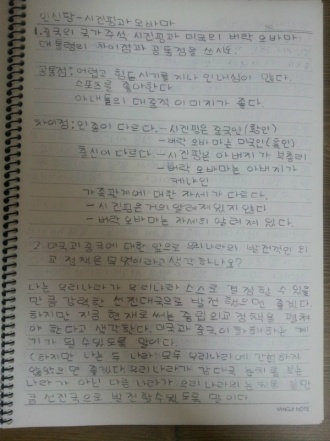 인식당 - 시진핑과 오바마
1. 중국의 국가주석 시진핑과 미국의 버락 오바마
대통령의 차이점과 공통점을 쓰시오.
공통점: 어렵고 힘든시기를 지나 인내심이 많다.
스포츠를 좋아한다
아내들의 대중적 이미지가 좋다.
차이점: 인종이 다르다. - 시진핑은 중국인 (황인)
- 버락 오바마는 미국인 (흑인)
출신이 다르다 - 시진핑은 아버지가 부총리
- 버락 오바마는 아버지가
케냐인
가족관계에 대한 자세가 다르다.
- 시진핑은 거의 알려져 있지 않다
- 버락 오바마는 자세히 알려져 있다
2. 미국과 중국에 대한 앞으로 우리나라의 발전적인 외
교 정책은 무엇이라고 생각하나요?
나는 우리나라가 우리나라 스스로 결정할 수 있을
만큼 강력한 선진대국으로 발전했으면 좋겠다.
하지만 지금 현재로써는 중립외교정책을 펼쳐
야 한다고 생각한다. 미국과 중국이 화해하는 계
기가 될 수 있도록 말이다.
(하지만 나는 두 나라 모두 우리나라에 간섭하지
않았으면 좋겠다. 우리나라가 강대국 눈치를 보는
나라가 아닌 다른 나라가 우리나라의 눈치를 볼만
큼 선진국으로 발전할 수 있도록 말이다.
YANGJI NOTE